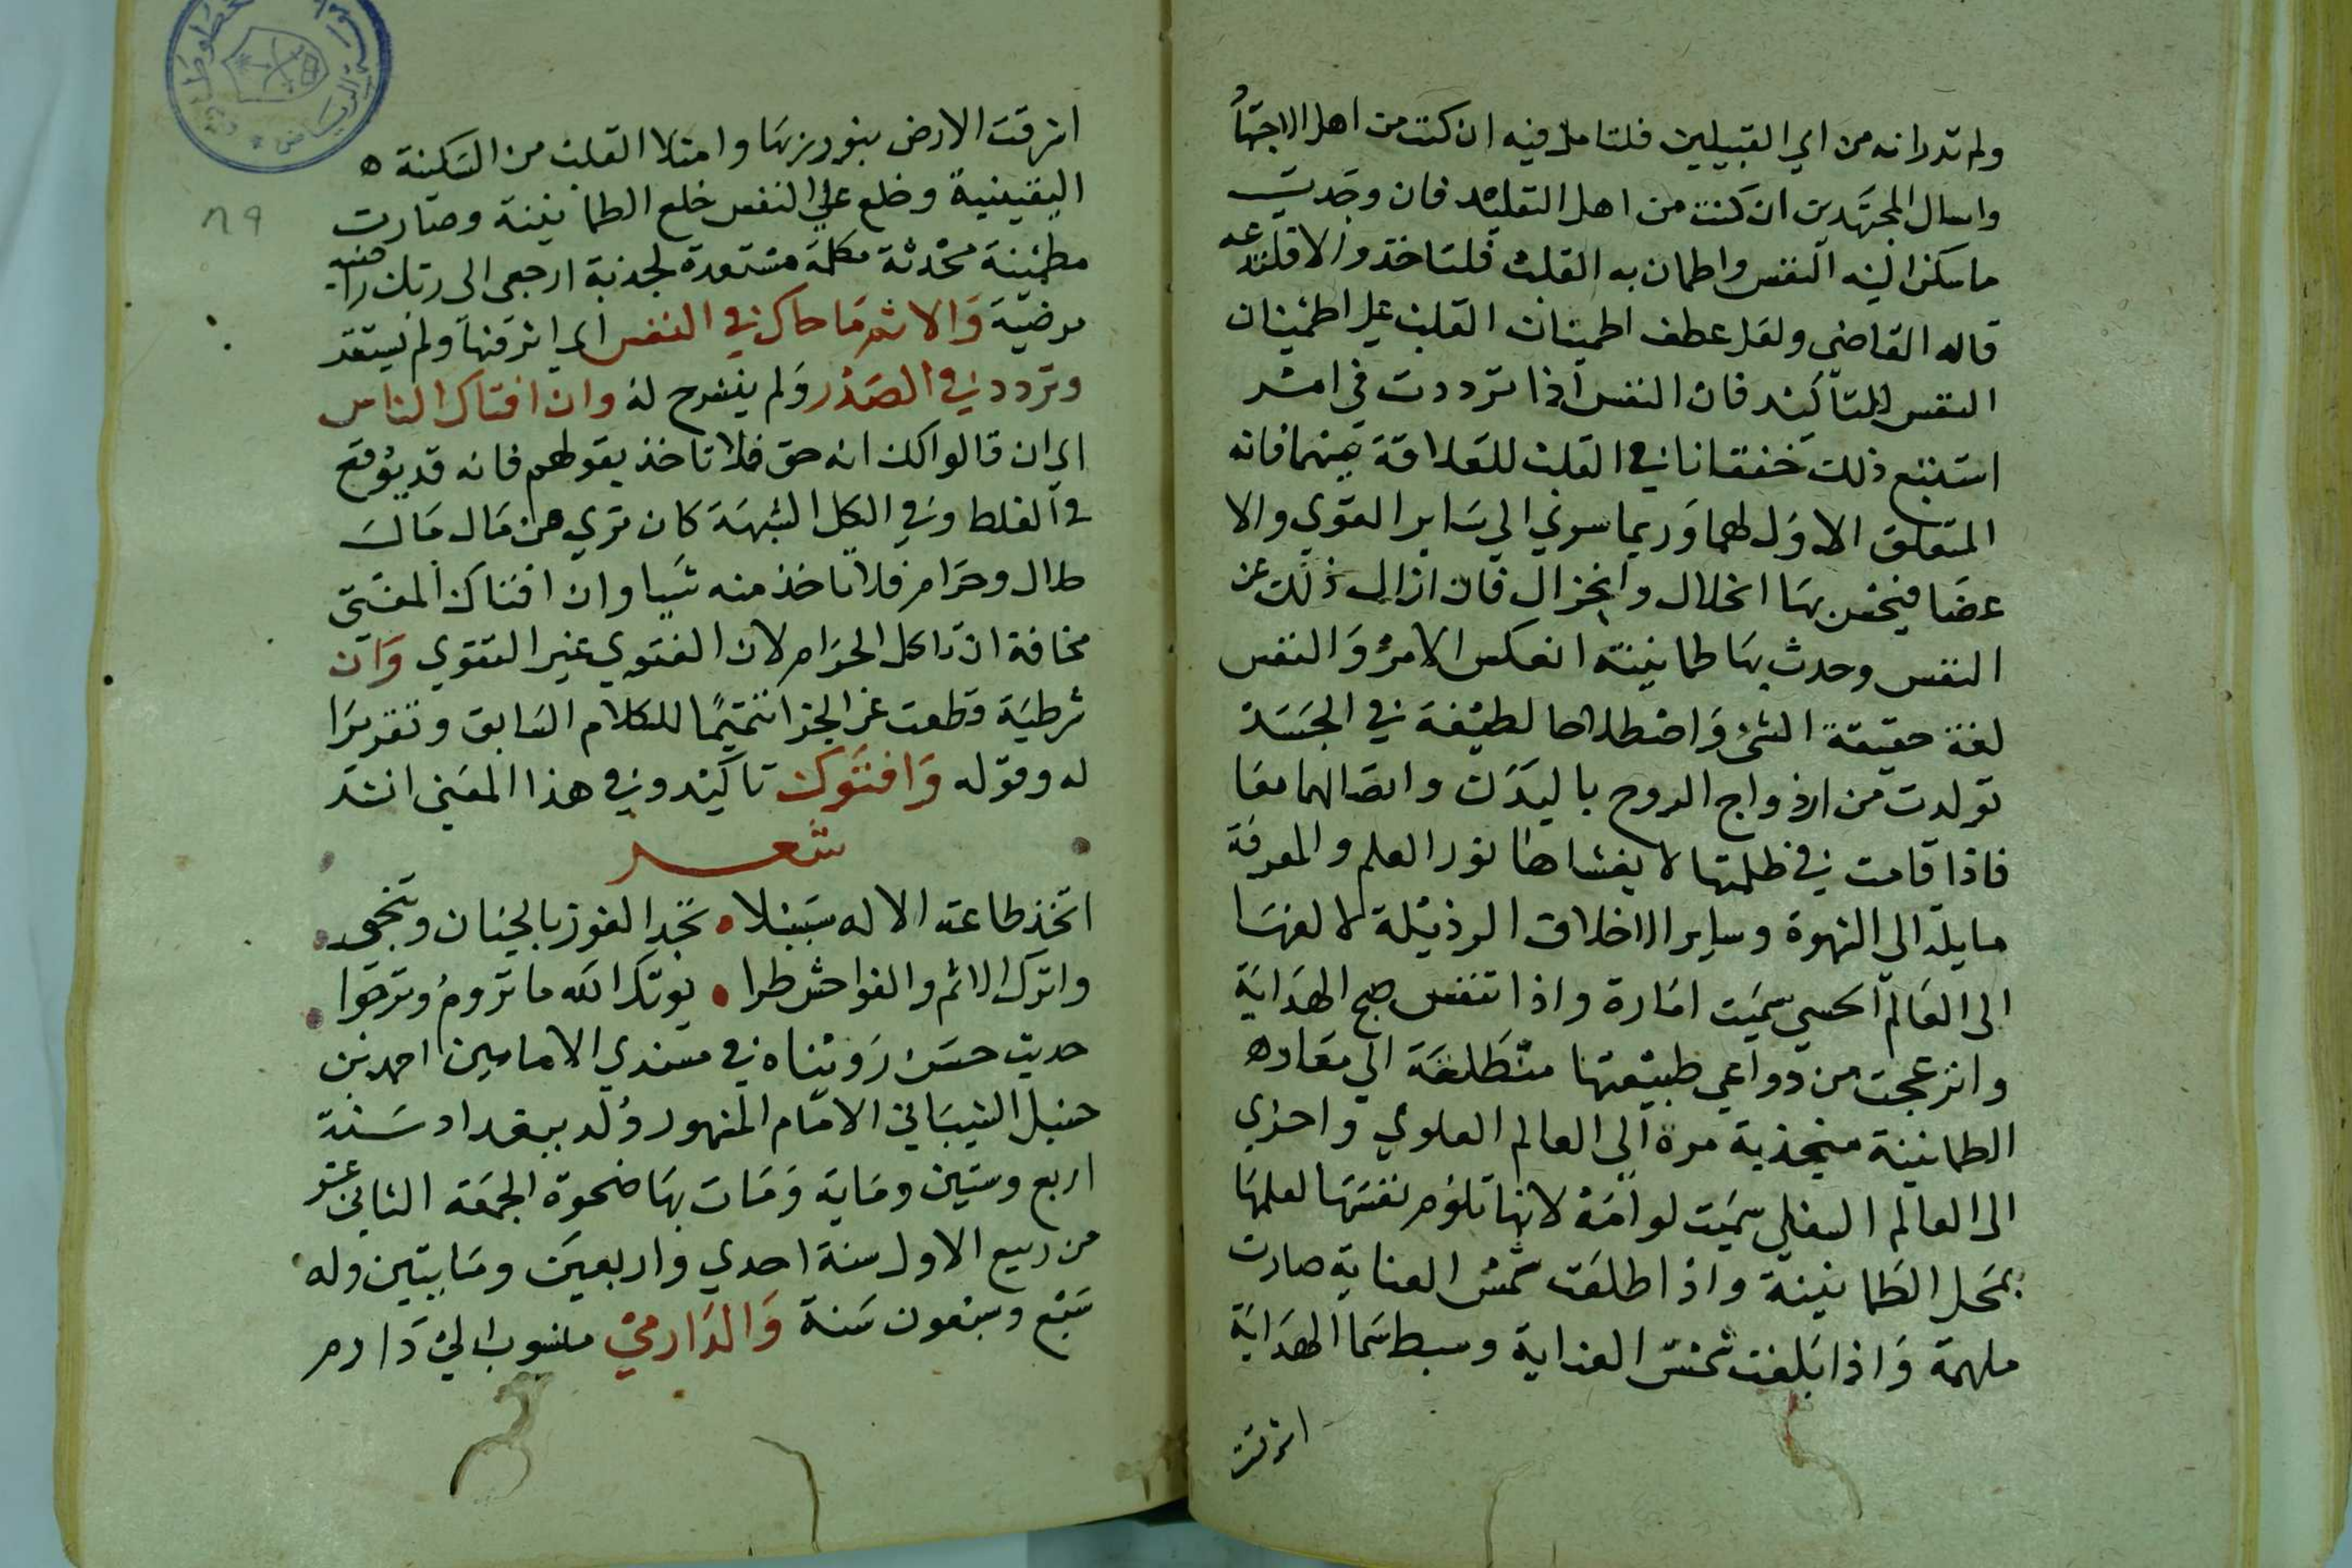 ولم تدر انه من اي القبيلين فلتامل فيه ان كنت من اهل الاجتهاد
واسال المجتهدين ان كنت من اهل التقليد فان وجدت
ما سكن اليه النفس واطمان به القلب فلتاخذ والا فلتدعه
قاله القاضي ولعل عطف اطمينان القلب علي اطمئينان
النفس للتاكيد فان النفس اذا ترددت في امر
استتبع ذلك خفقانا في القلب للعلاقة بينهما فانه
المتعلق الاول لهما وربما سري الي ساير القوي والا
عضا فيحس بها انحلال وانخزال فان ازال ذلك عن
النفس وحدث بها طمانينة انعكس الامر والنفس
لغة حقيقة الشئ واصطلاحا لطيفة في الجسد
تولدت من ازدواج الروح بالبدن واتصالهما معا
فاذا قامت في ظلمتها لا يغشاها نور العلم والمعرفة
مايلة الي الشهوة وساير الاخلاق الرذيلة لالفها
الى العالم الحسي سميت امارة واذا تنفس صبح الهداية
وانزعجت من دواعي طبيعتها متطلعة الي معاده
الطمانينة منجذبة مرة الي العالم العلوي واخري
الى العالم السفلي سميت لوامة لانها تلوم نفسها لعلمها
بمحل الطمانينة واذا طلعت شمس العناية صارت
ملهمة واذا بلغت شمس العناية وسط سما الهداية
اشرقت
اشرقت الارض بنور ربها وامتلا القلب من السكينة ه
اليقينية وخلع علي النفس خلع الطمانينة وصارت
مطمئينة محدثة مكلمة مستعدة لجذبة ارجعي الى ربك راضية
مرضية والاثم ما حاك في النفس اي اثر فيها ولم يستقر
وتردد في الصدر ولم ينشرح له وان افتاك الناس
اي ان قالوا لك انه حق فلا تاخذ بقولهم فانه قد يوقع
في الغلط وفي اكل الشبهة كان تري من مال مال
حلال وحرام فلا تاخذ منه شيا وان افتاك المفتي
مخافة ان تاكل الحرام لان الفتوي غير التقوي وان
شرطية قطعت عن الجزا تتميما للكلام السابق وتقريرا
له وقوله وافتوك تاكيد وفي هذا المعني انشد
شعر
اتخذ طاعة الاله سبيلا • تجد الفوز بالجنان وتنجي •
واترك الاثم والفواحش طرا • يوتك الله ما تروم وترجوا •
حديث حسن رويناه في مسندي الامامين احمد بن
حنبل الشيباني الامام المشهور ولد ببغداد سنة
اربع وستين وماية ومات بها ضحوة الجمعة الثاني عشر
من ربيع الاول سنة احدي واربعين ومايتين وله
سبع وسبعون سنة والدارمي منسوب الي دارم